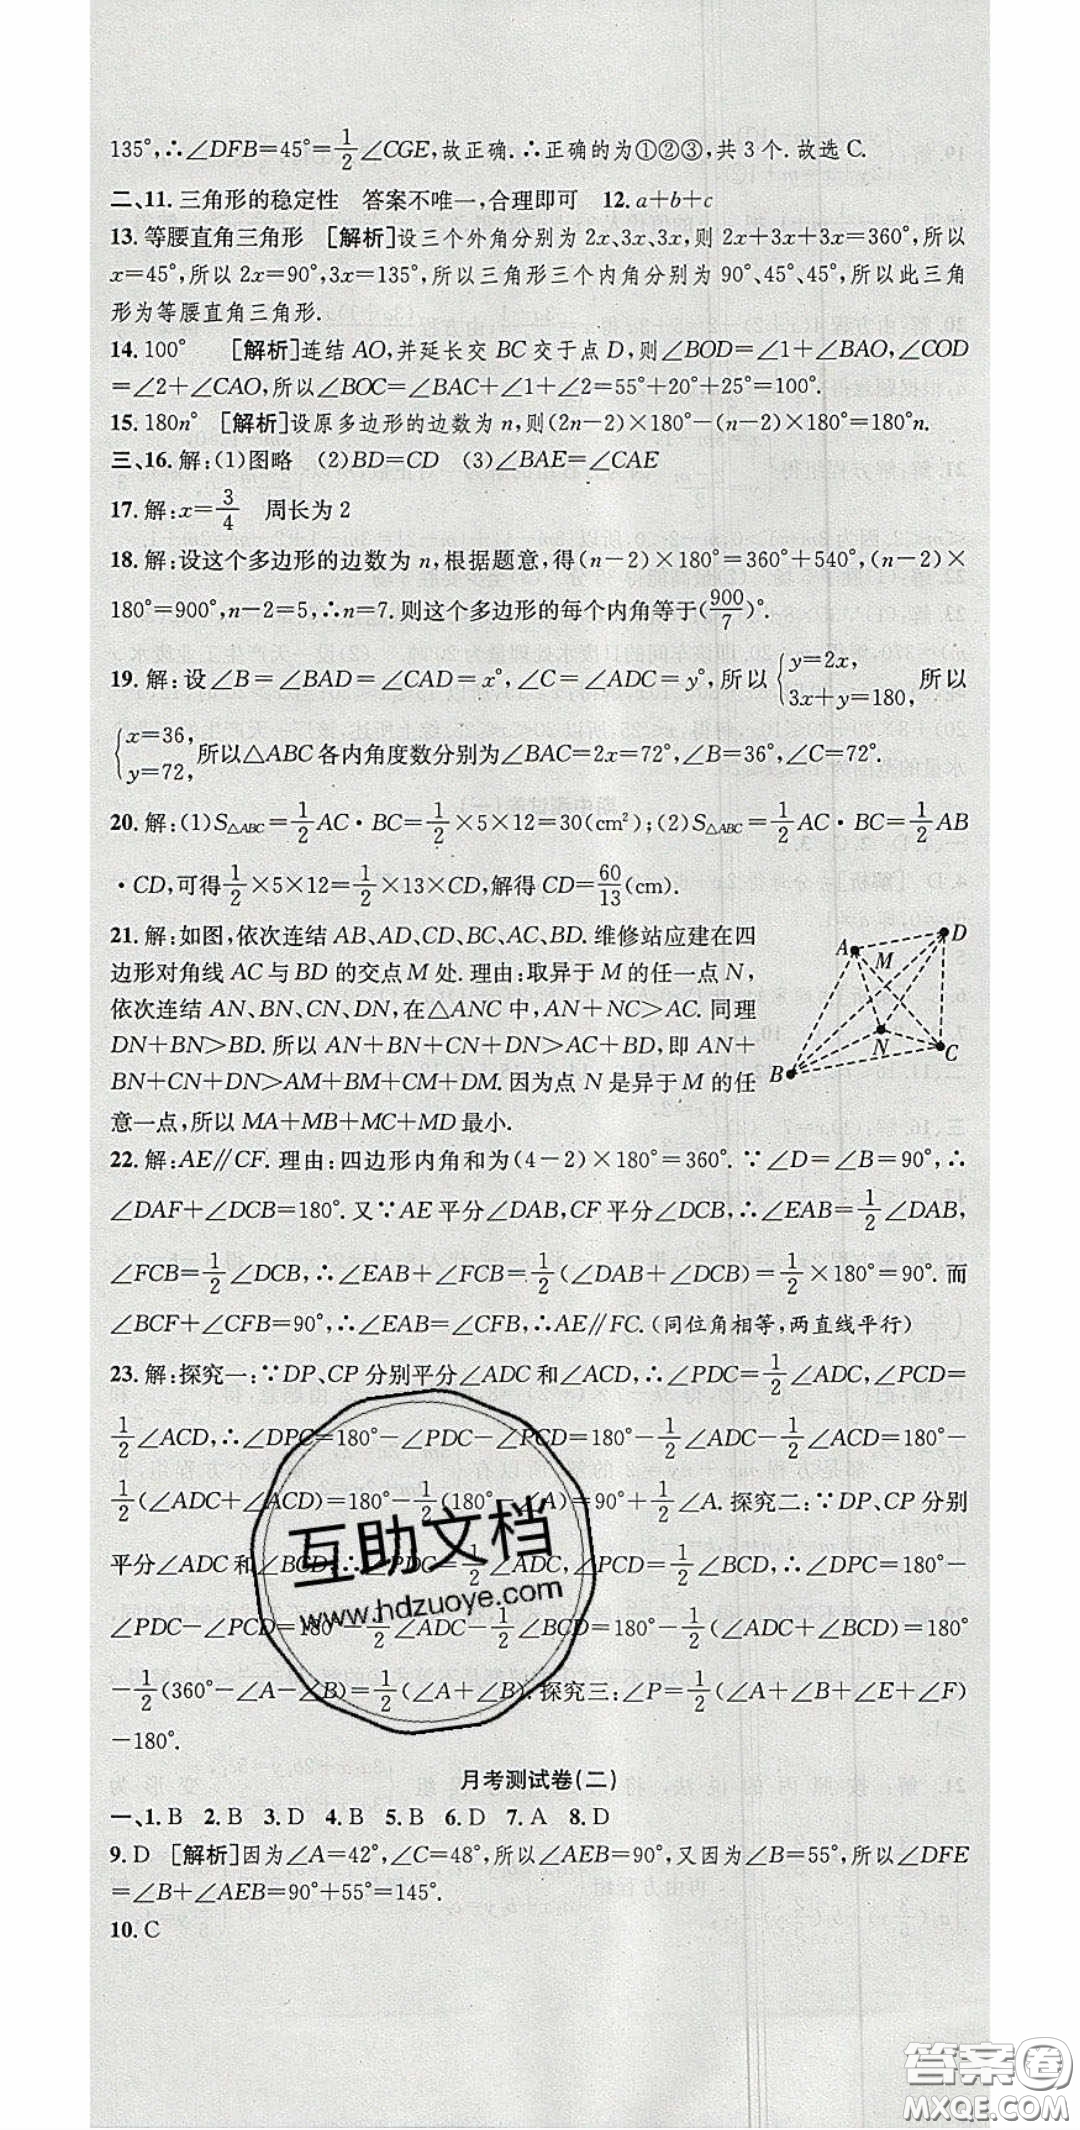 135°,∴∠DFB=45°=1/2∠CGE,故正确.∴正确的为①②③,共3个.故选C.
二、11.三角形的稳定性 答案不唯一,合理即可 12.a+b+c
13.等腰直角三角形 [解析]设三个外角分别为2x、3x、3x,则2x+3x+3x=360°,所以
x=45°,所以2x=90°,3x=135°,所以三角形三个内角分别为90°、45°、45°,所以此三角
形为等腰直角三角形.
14.100° [解析]连结AO,并延长交BC交于点D,则∠BOD=∠1+∠BAO,∠COD
=∠2+∠CAO,所以∠BOC=∠BAC+∠1+∠2=55°+20°+25°=100°.
15.180n° [解析]设原多边形的边数为n,则(2n-2)×180°-(n-2)×180°=180°n.
三、16.解:(1)图略 (2)BD=CD (3)∠BAE=∠CAE
17.解:x=3/4 周长为2
18.解:设这个多边形的边数为n,根据题意,得(n-2)×180°=360°+540°,(n-2)×
180°=900°,n-2=5,∴n=7.则这个多边形的每个内角等于(900/7)°.
19.解:设∠B=∠BAD=∠CAD=x°,∠C=∠ADC=y°,所以{y=2x, 3x+y=180,所以
{x=36, y=72,所以△ABC各内角度数分别为∠BAC=2x=72°,∠B=36°,∠C=72°.
20.解:(1)S△ABC=1/2AC·BC=1/2×5×12=30(cm²);(2)S△ABC=1/2AC·BC=1/2AB
·CD,可得1/2×5×12=1/2×13×CD,解得CD=60/13(cm).
21.解:如图,依次连结AB、AD、CD、BC、AC、BD.维修站应建在四
边形对角线AC与BD的交点M处.理由:取异于M的任一点N,
依次连结AN、BN、CN、DN,在△ANC中,AN+NC>AC.同理
DN+BN>BD.所以AN+BN+CN+DN>AC+BD,即AN+
BN+CN+DN>AM+BM+CM+DM.因为点N是异于M的任
意一点,所以MA+MB+MC+MD最小.
A
M
D
N
C
B
22.解:AE∥CF.理由:四边形内角和为(4-2)×180°=360°.∵∠D=∠B=90°,∴
∠DAF+∠DCB=180°.又∵AE平分∠DAB,CF平分∠DCB,∴∠EAB=1/2∠DAB,
∠FCB=1/2∠DCB,∴∠EAB+∠FCB=1/2(∠DAB+∠DCB)=1/2×180°=90°.而
∠BCF+∠CFB=90°,∴∠EAB=∠CFB,∴AE∥FC.(同位角相等,两直线平行)
23.解:探究一:∵DP、CP分别平分∠ADC和∠ACD,∴∠PDC=1/2∠ADC,∠PCD=
1/2∠ACD,∴∠DPC=180°-∠PDC-∠PCD=180°-1/2∠ADC-1/2∠ACD=180°-
1/2(∠ADC+∠ACD)=180°-1/2(180°-∠A)=90°+1/2∠A.探究二:∵DP、CP分别
平分∠ADC和∠BCD,∴∠PDC=1/2∠ADC,∠PCD=1/2∠BCD,∴∠DPC=180°-
∠PDC-∠PCD=180°-1/2∠ADC-1/2∠BCD=180°-1/2(∠ADC+∠BCD)=180°
-1/2(360°-∠A-∠B)=1/2(∠A+∠B).探究三:∠P=1/2(∠A+∠B+∠E+∠F)
-180°.
互助文档
www.hdzuoye.com
月考测试卷(二)
一、1.B 2.B 3.D 4.B 5.B 6.D 7.A 8.D
9.D [解析]因为∠A=42°,∠C=48°,所以∠AEB=90°,又因为∠B=55°,所以∠DFE
=∠B+∠AEB=90°+55°=145°.
10.C
答案圈
MXQE.COM